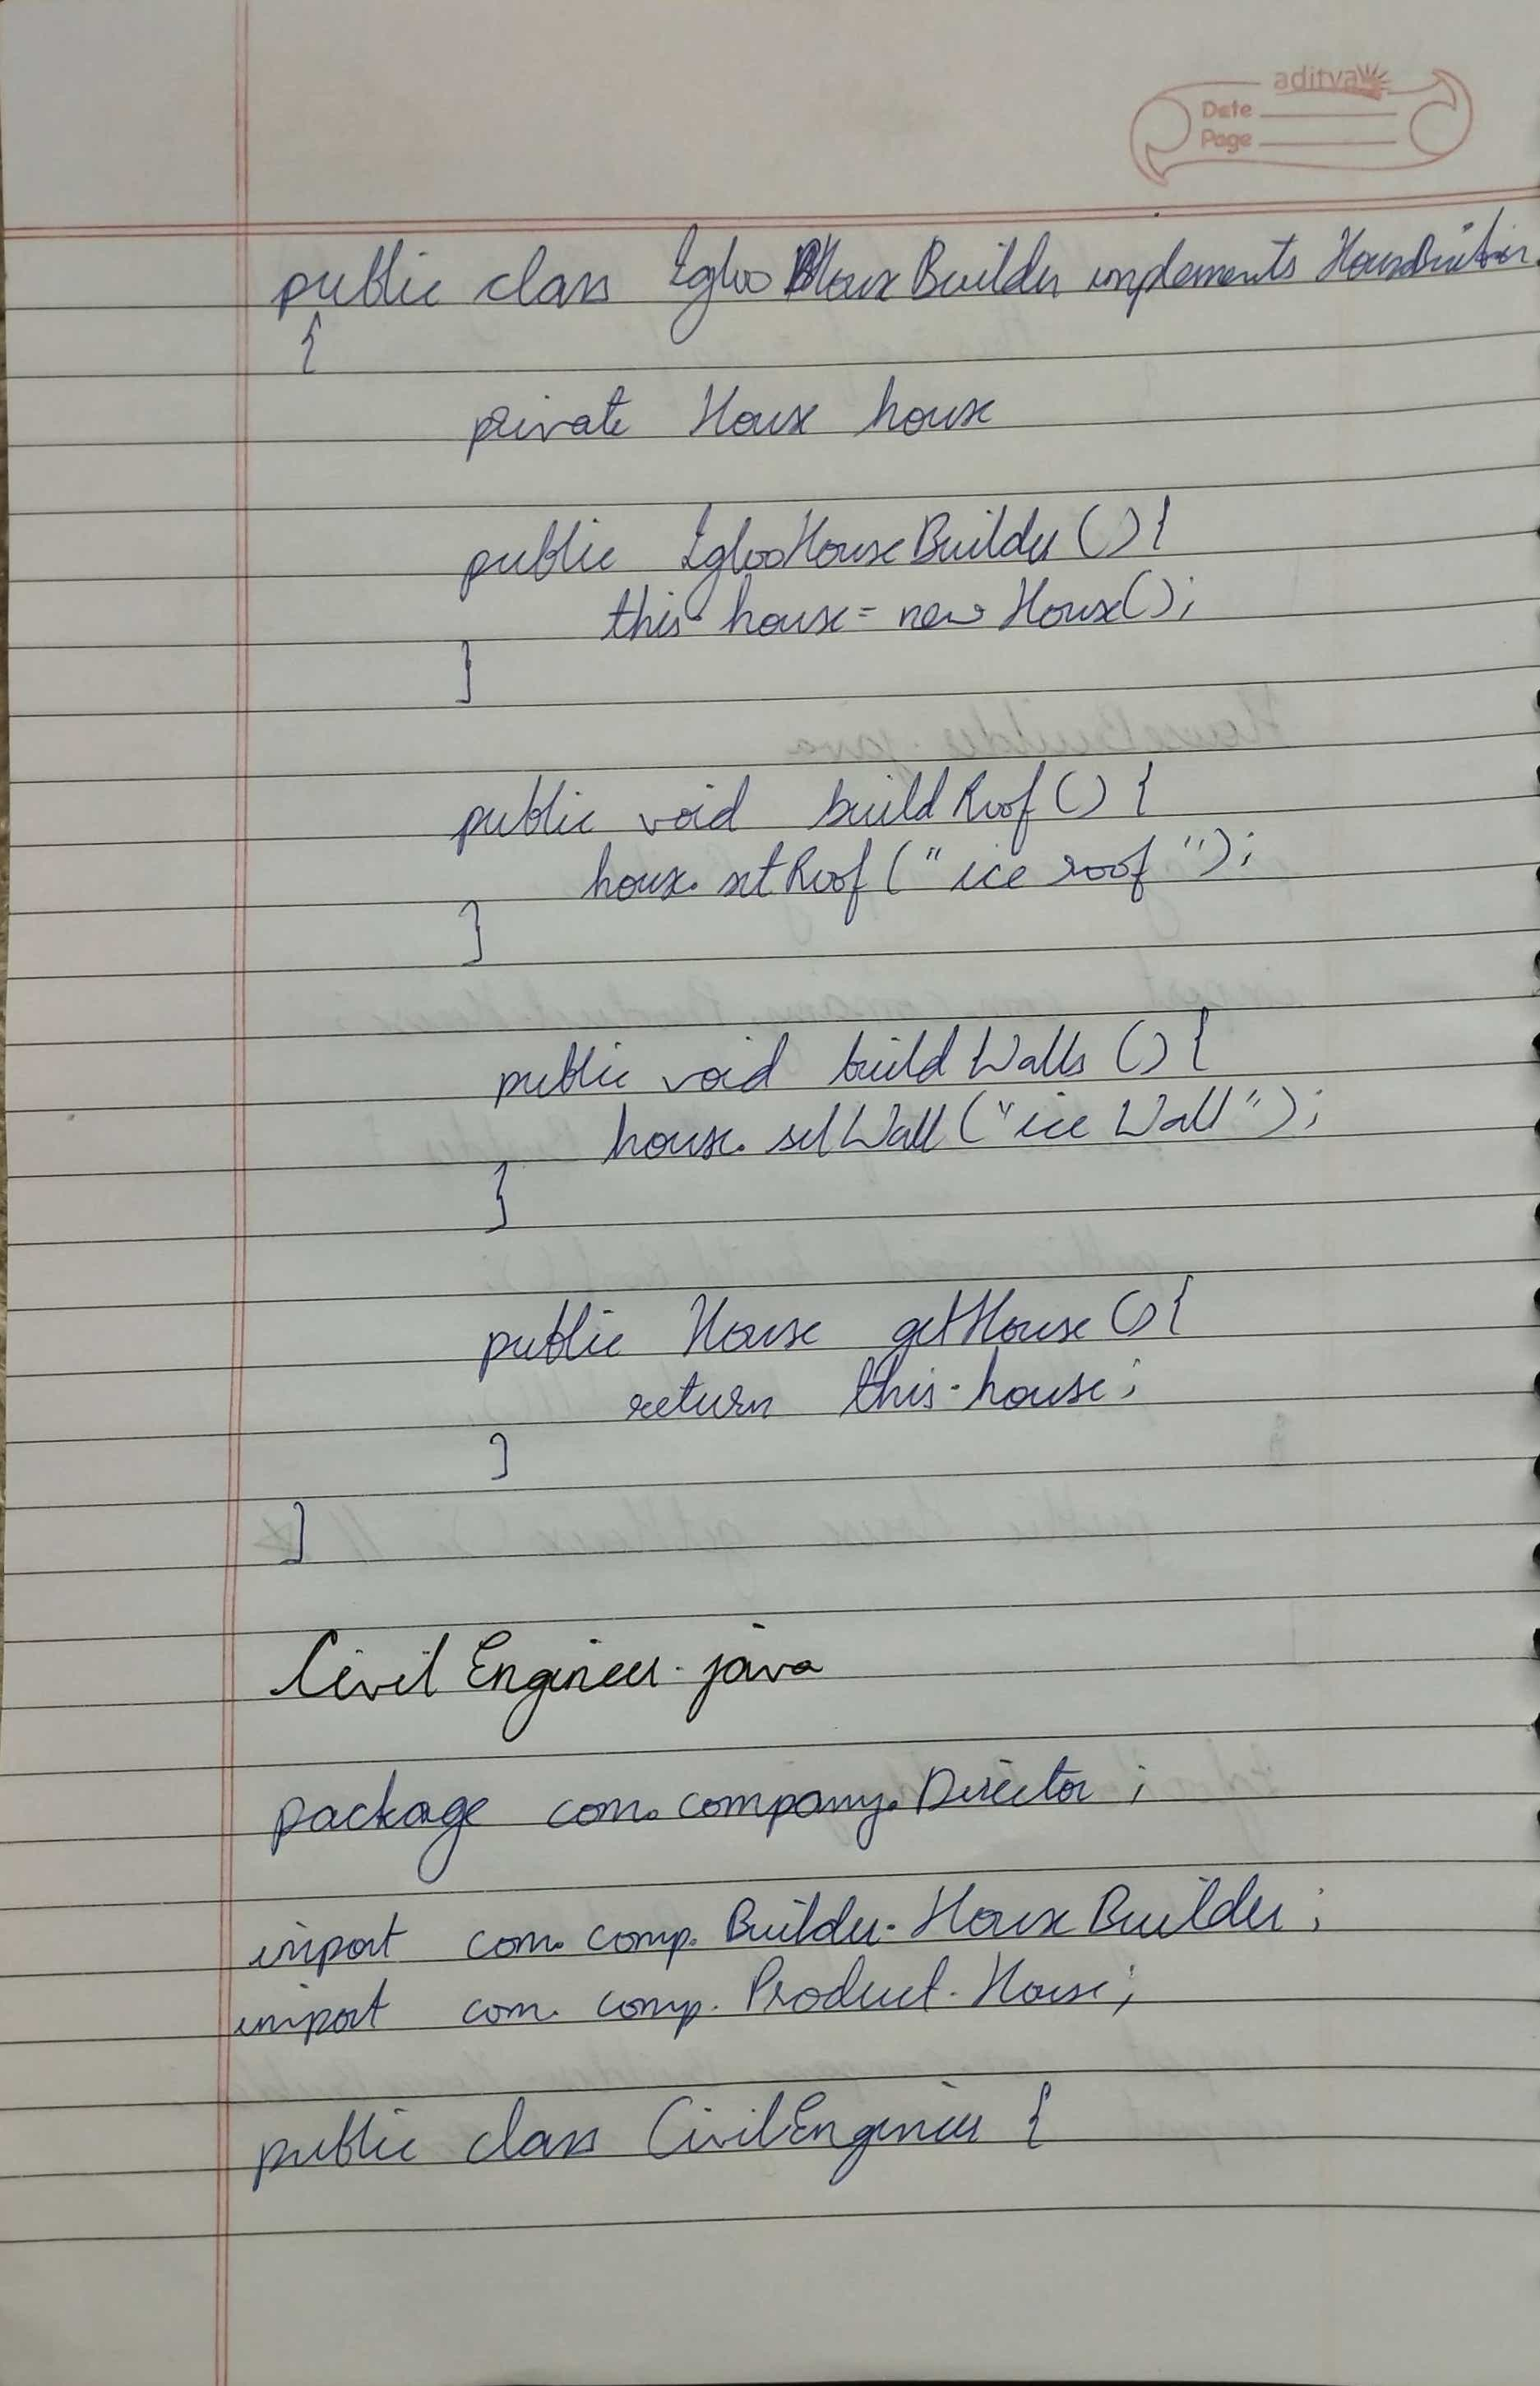 aditya
Date
Page
public class IglooHouseBuilder implements HouseBuilder
{
private House house
public IglooHouseBuilder(){
this.house = new House();
}
public void buildRoof() {
house.setRoof("ice roof");
}
public void buildWalls () {
house.setWall("ice Wall");
}
public House getHouse(){
return this.house;
}
}
CivilEngineer.java
package com.company.Director;
import com.comp.Builder.HouseBuilder;
import com.comp.Product.House;
public class CivilEngineer {